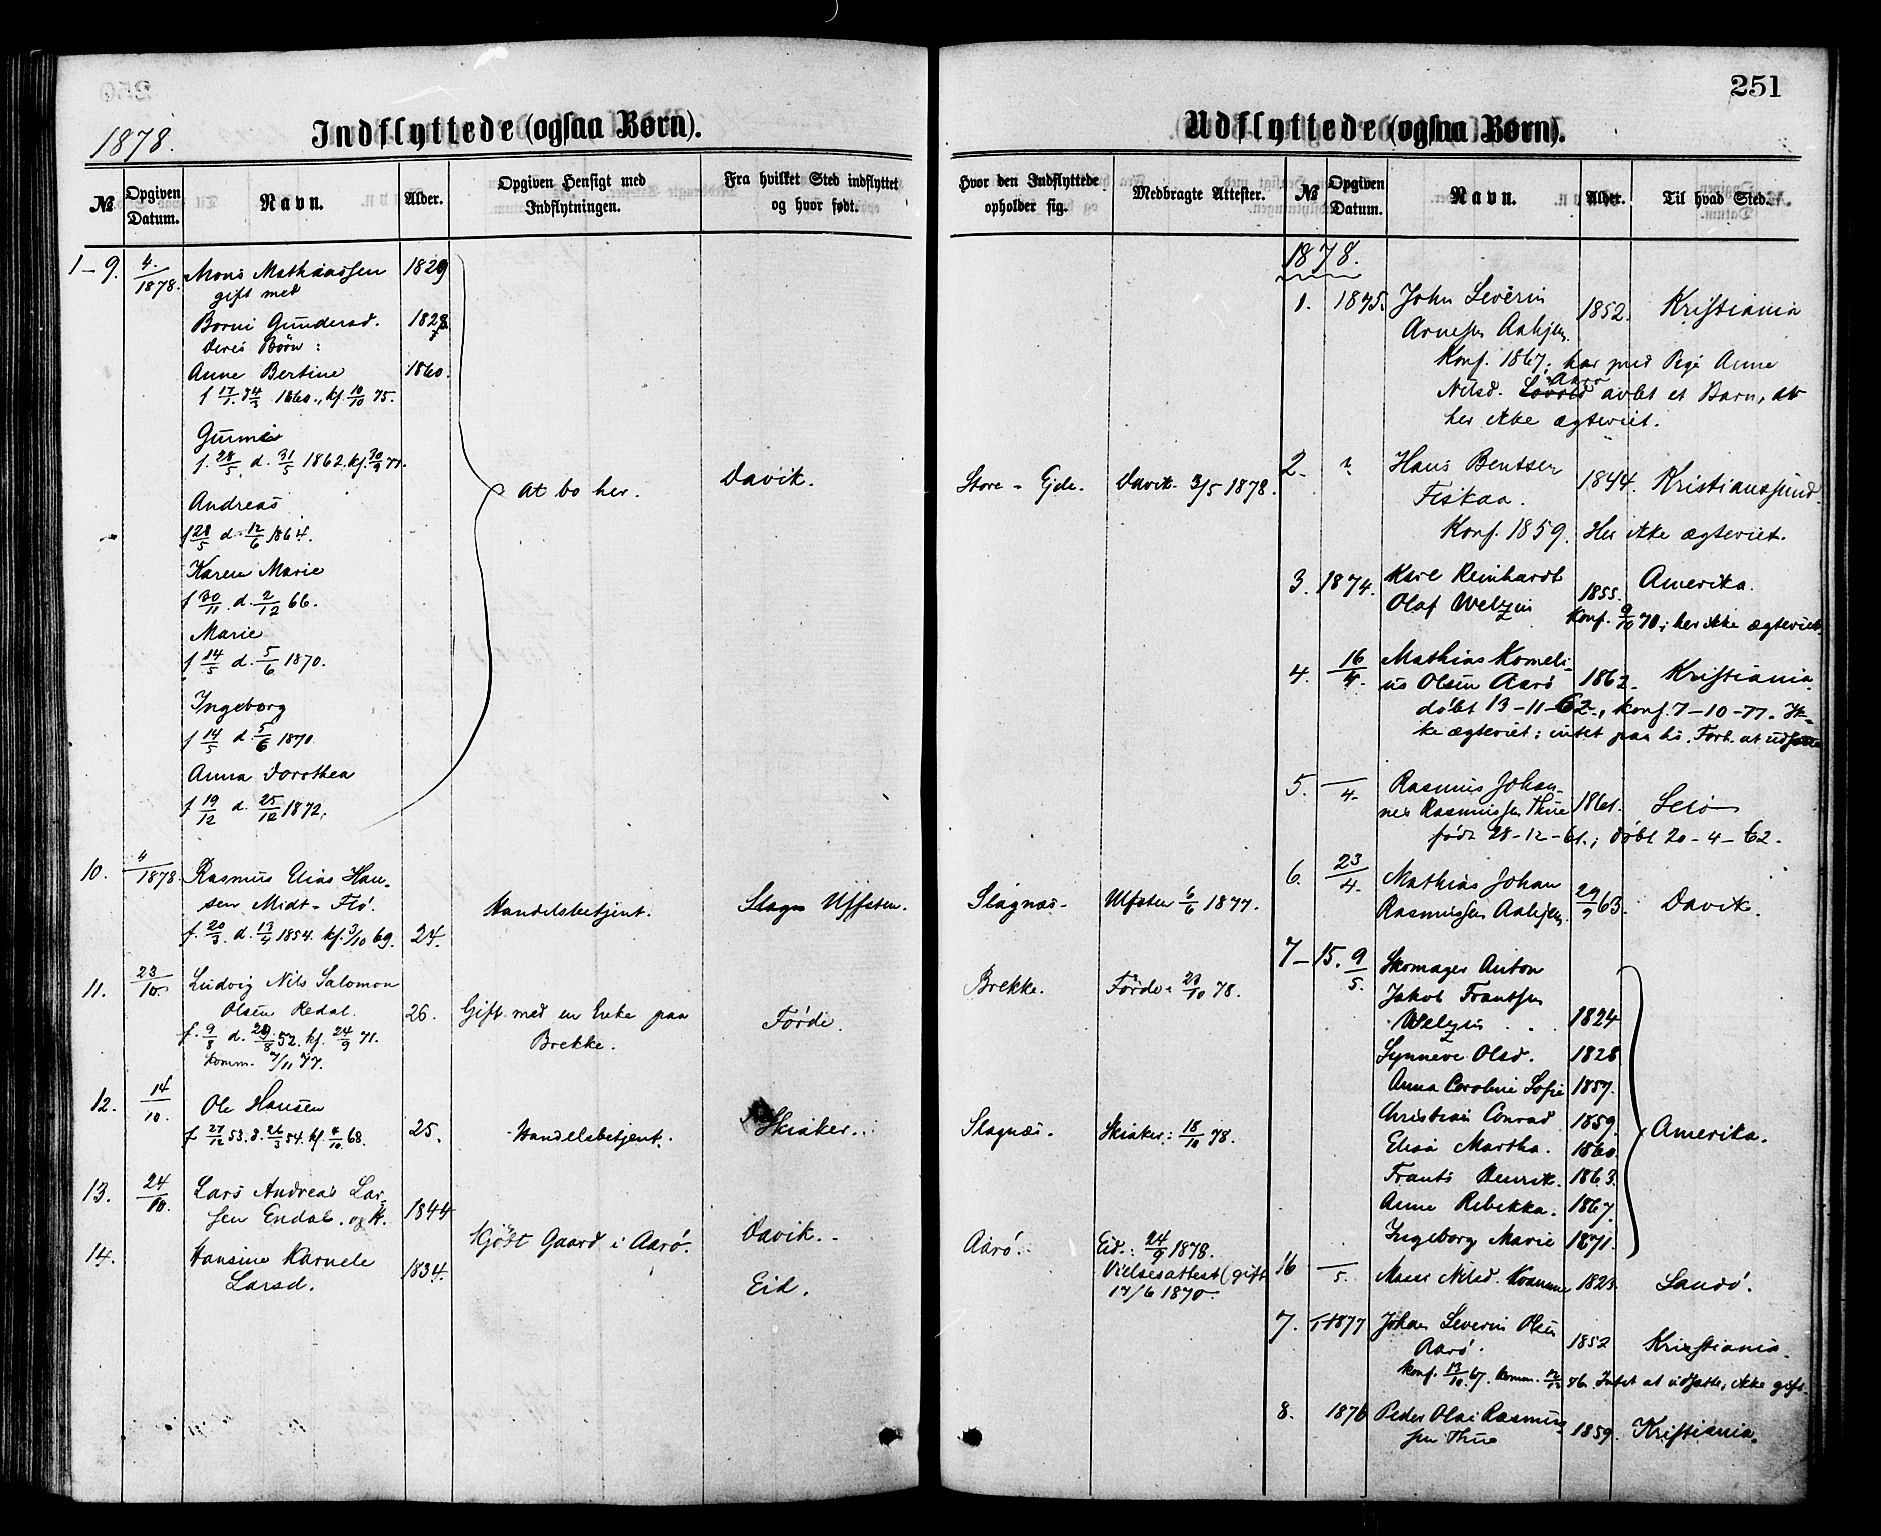 251
1878.
Indflyttede (ogsaa Børn).
№
Opgiven Datum.
Navn.
Alder.
Opgiven Hensigt med Indflytningen.
Fra hvilket Sted indflyttet og hvor født.
Hvor den Indflyttede opholder sig.
Medbragte Attester.
1-9. 4/1878. Mons Mathiassen 1829
gift med
Borni Gundersd. 1828
deres Børn:
Anne Bertine 1860.
1860., kf. 10/10 75.
f. 28/5. d. 31/5 1862. kf. 30/9 77.
Andreas
f 28/5 d. 12/6 1864.
Karen Marie
f 30/11. d. 2/12 66.
Marie
f 14/5 d. 5/6 1870.
Ingeborg
f 14/5 d. 5/6 1870
Anna Dorothea
f 19/12 d. 25/12 1872.
At bo her. Davik. Store-Ejde. Davik 3/5 1878.
10. 4/1878. Rasmus Elias Han-
sen Midt-Flö.
f. 20/3. d. 17/4 1854. kf. 3/10 69. 24.
Handelsbetjent. Ulfsten. Slagnæs. Ulfsten 6/6 1877.
11. 23/10. Ludvig Nils Salomon
Olsen Redal. 26.
f. 9/8 d. 29/8 52. kf. 24/9 71.
komm. 4/11 77.
Gift med en Enke paa
Brekke.
Förde. Brekke. Förde: 20/10 78.
12. 14/10. Ole Hansen
f 27/12 53. d. 26/3 54. kf 4/10 68. 25.
Handelsbetjent. Skiaker. Slagnæs. Skiaker: 18/10 78.
13. 24/10. Lars Andreas Lar-
sen Endal. og H. 1844
14. Hansine Karnele
Larsd. 1834.
Kjöbt Gaard i Aarö. Davik.
Eid.
Aarö. Eid.: 24/9 1878.
Vielsesattest (gift
17/6 1870.
Udflyttede (ogsaa Børn).
№
Opgiven Datum.
Navn.
Alder.
Til hvad Sted.
1878.
1. 1875. John Severin
Arnesen Aahjem 1852. Kristiania
Konf. 1867; har med Pige Anne
Nilsd. avlet et Barn, er
her ikke ægteviet.
2. Hans Bentsen
Fiskaa. 1844. Kristianssund.
Konf. 1859. Her ikke ægteviet.
3. 1874. Karl Reinhardt
Olaf Welzin 1855. Amerika.
Konf. 9/10 70; her ikke ægteviet
4. 16/4. Mathias Korneli-
us Olsen Aarö 1862. Kristiania.
döbt 13-11-62., konf. 7-10-77. Ik-
ke ægteviet; intet paa hs. Forh. at udsætte
5. /4. Rasmus Johan-
nes Rasmussen Thue 1861. Selö
födt 28-12-61.; döbt 20-4-62.
6. 23/4. Mathias Johan
Rasmussen Aahjem 29/9 63. Davik.
7-15. 9/5. Skomager Anton
Jakob Frantsen
Welzin 1824
Synneve Olsd. 1828
Anna Caroline Sofie 1857.
Christian Conrad 1859.
Elisa Martha. 1860.
Frants Henrik. 1863.
Anne Rebekka. 1867.
Ingeborg Marie 1871.
Amerika.
16 /5. Nilsd. Kvamme 1823. Sandö.
7. 1877 Johan Severin Olsen
Aarö. 1852 Kristiania.
Konf. 13/10. 67. komm. 76. Intet at udsætte, ikke gift.
8. 1876 Peder Olai Rasmus-
sen Thue 1859. Kristiania.